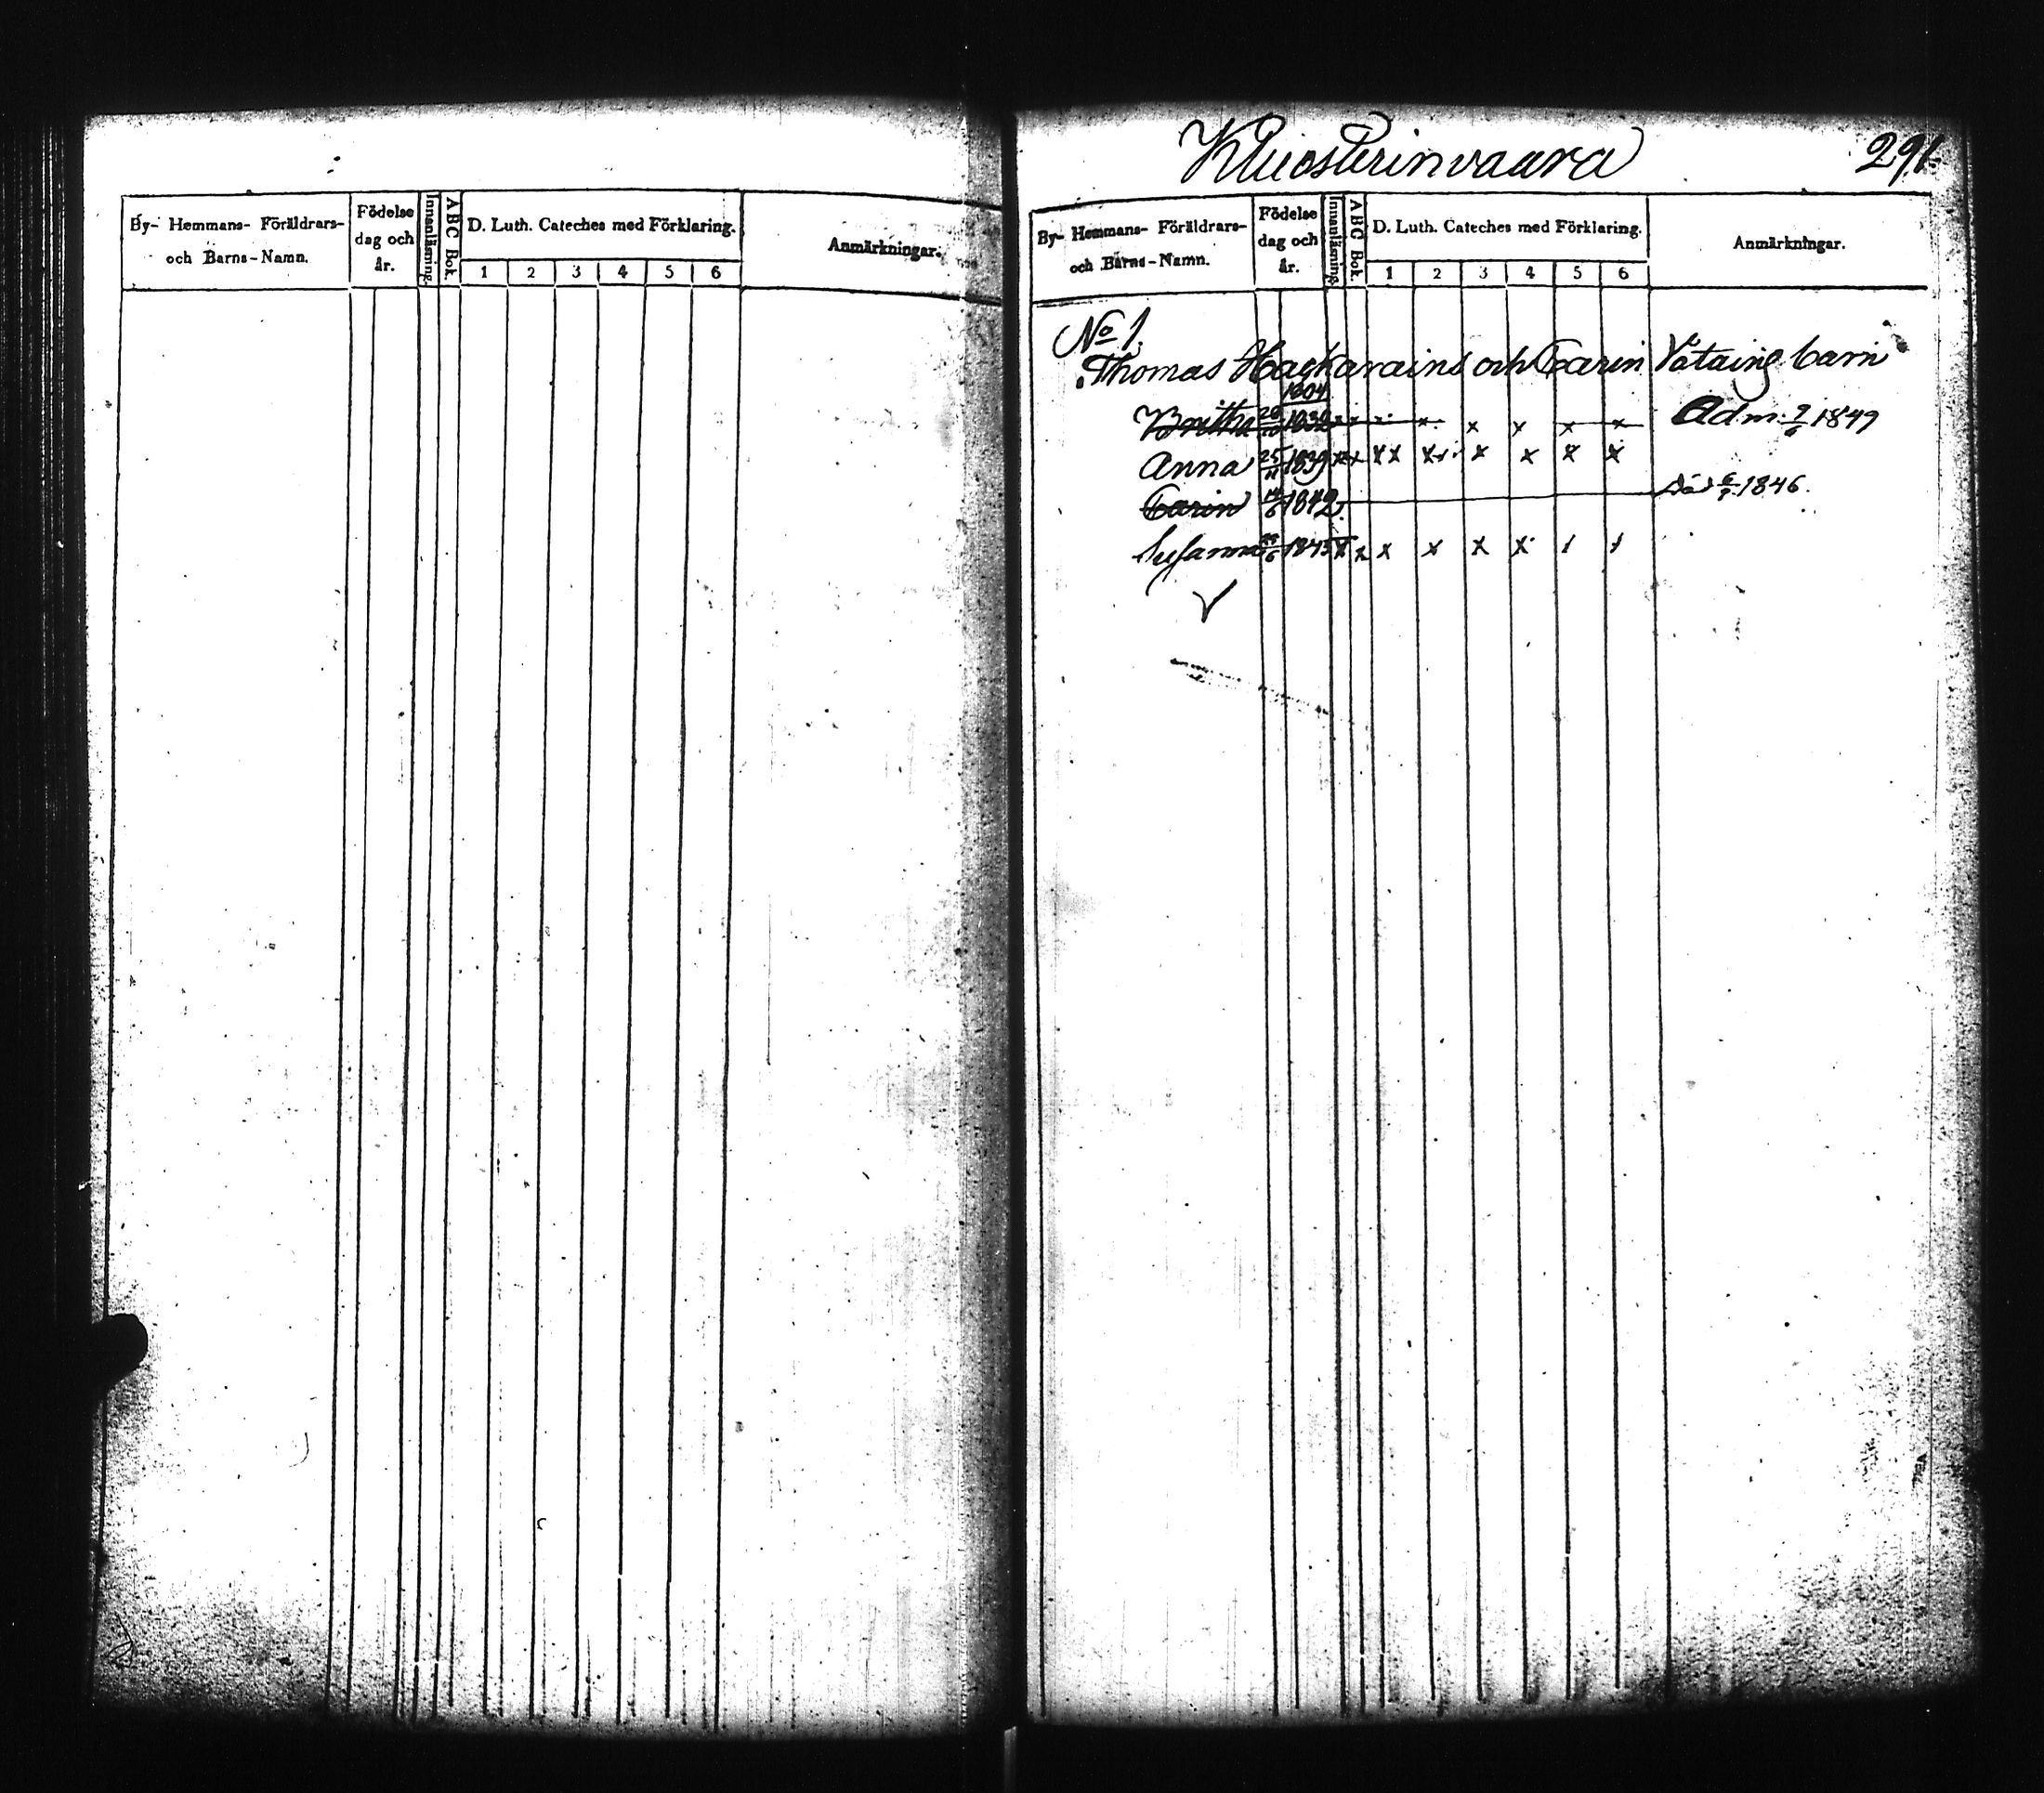 By- Hemmans- Föräldrars-
och Barns-Namn.
Födelse
dag och
år.
Innanläsning.
ABC Bok.
D. Luth. Cateches med Förklaring.
1 2 3 4 5 6
Anmärkningar.
291.
By- Hemmans- Föräldrars-
och Barns-Namn.
Födelse
dag och
år.
Innanläsning.
ABC Bok.
D. Luth. Cateches med Förklaring.
1 2 3 4 5 6
Anmärkningar.
No 1.
Thomas och Carin barn
Britha x x x x x x Adm. 1849
Anna 25/11 1839 x x x x x x x x
Carin 1842. Död 1846.
Susanna 1843 x x x x x x